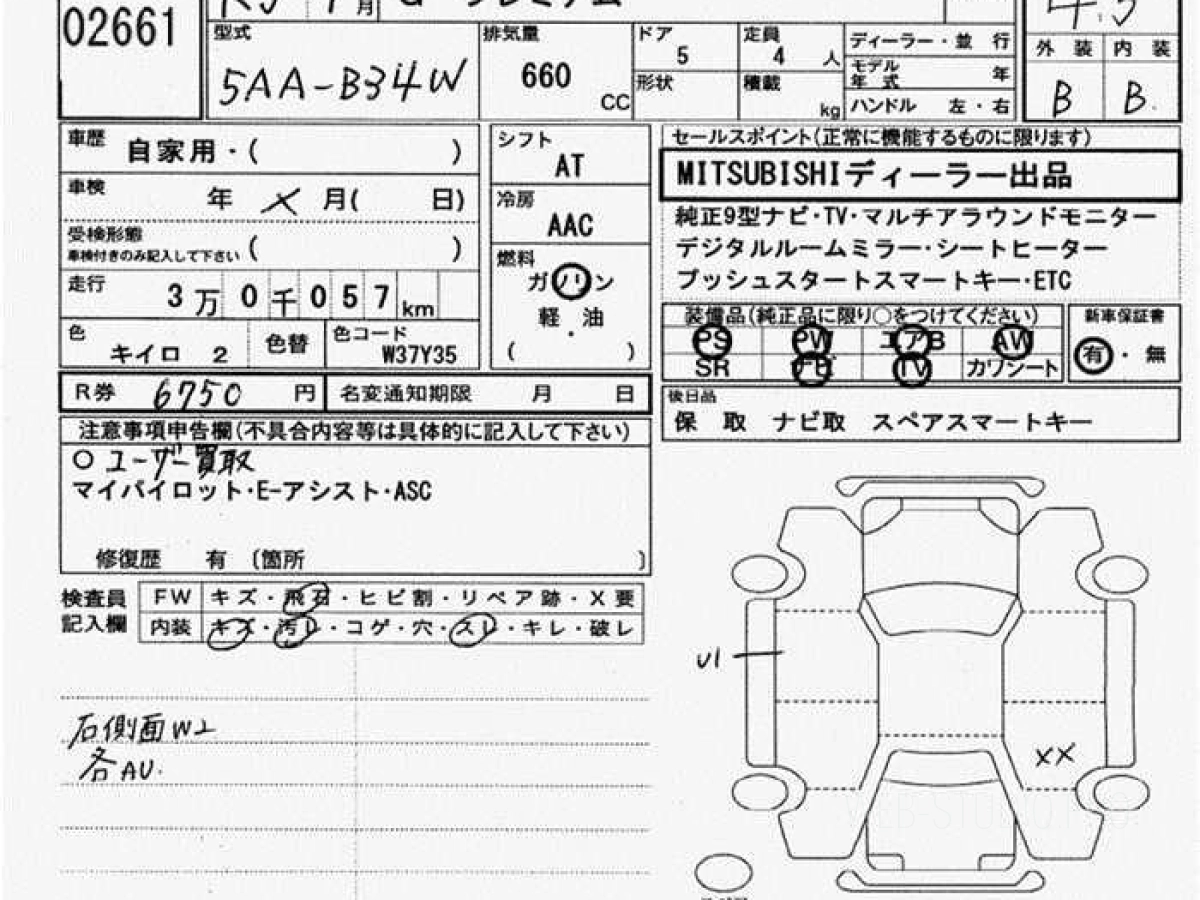 02661
型式
5AA-B34W
排気量
660
CC
ドア
5
形状
定員
4 人
積載
kg
ディーラー・並 行
モデル年式 年
ハンドル 左・右
4.5
外 装 内 装
B B
車歴
自家用・( )
車検
年 月( 日)
受検形態
車検付きのみ記入して下さい ( )
走行
3万0千057km
色
キイロ 2
色替
色コード
W37Y35
シフト
AT
冷房
AAC
燃料
ガソリン
軽・油
( )
R券 6750 円
名変通知期限 月 日
セールスポイント(正常に機能するものに限ります)
MITSUBISHIディーラー出品
純正9型ナビ・TV・マルチアラウンドモニター
デジタルルームミラー・シートヒーター
プッシュスタートスマートキー・ETC
装備品(純正品に限り○をつけてください)
PS PW エアB AW
SR ナビ TV カワシート
新車保証書
有・無
後日品
保 取 ナビ取 スペアスマートキー
注意事項申告欄(不具合内容等は具体的に記入して下さい)
○ ユーザー買取
マイパイロット・E-アシスト・ASC
修復歴 有 (箇所 )
検査員
記入欄
FW キズ・飛石・ヒビ割・リペア跡・X要
内装 キズ・汚レ・コゲ・穴・スレ・キレ・破レ
右側面W2
各AU.
U1
XX